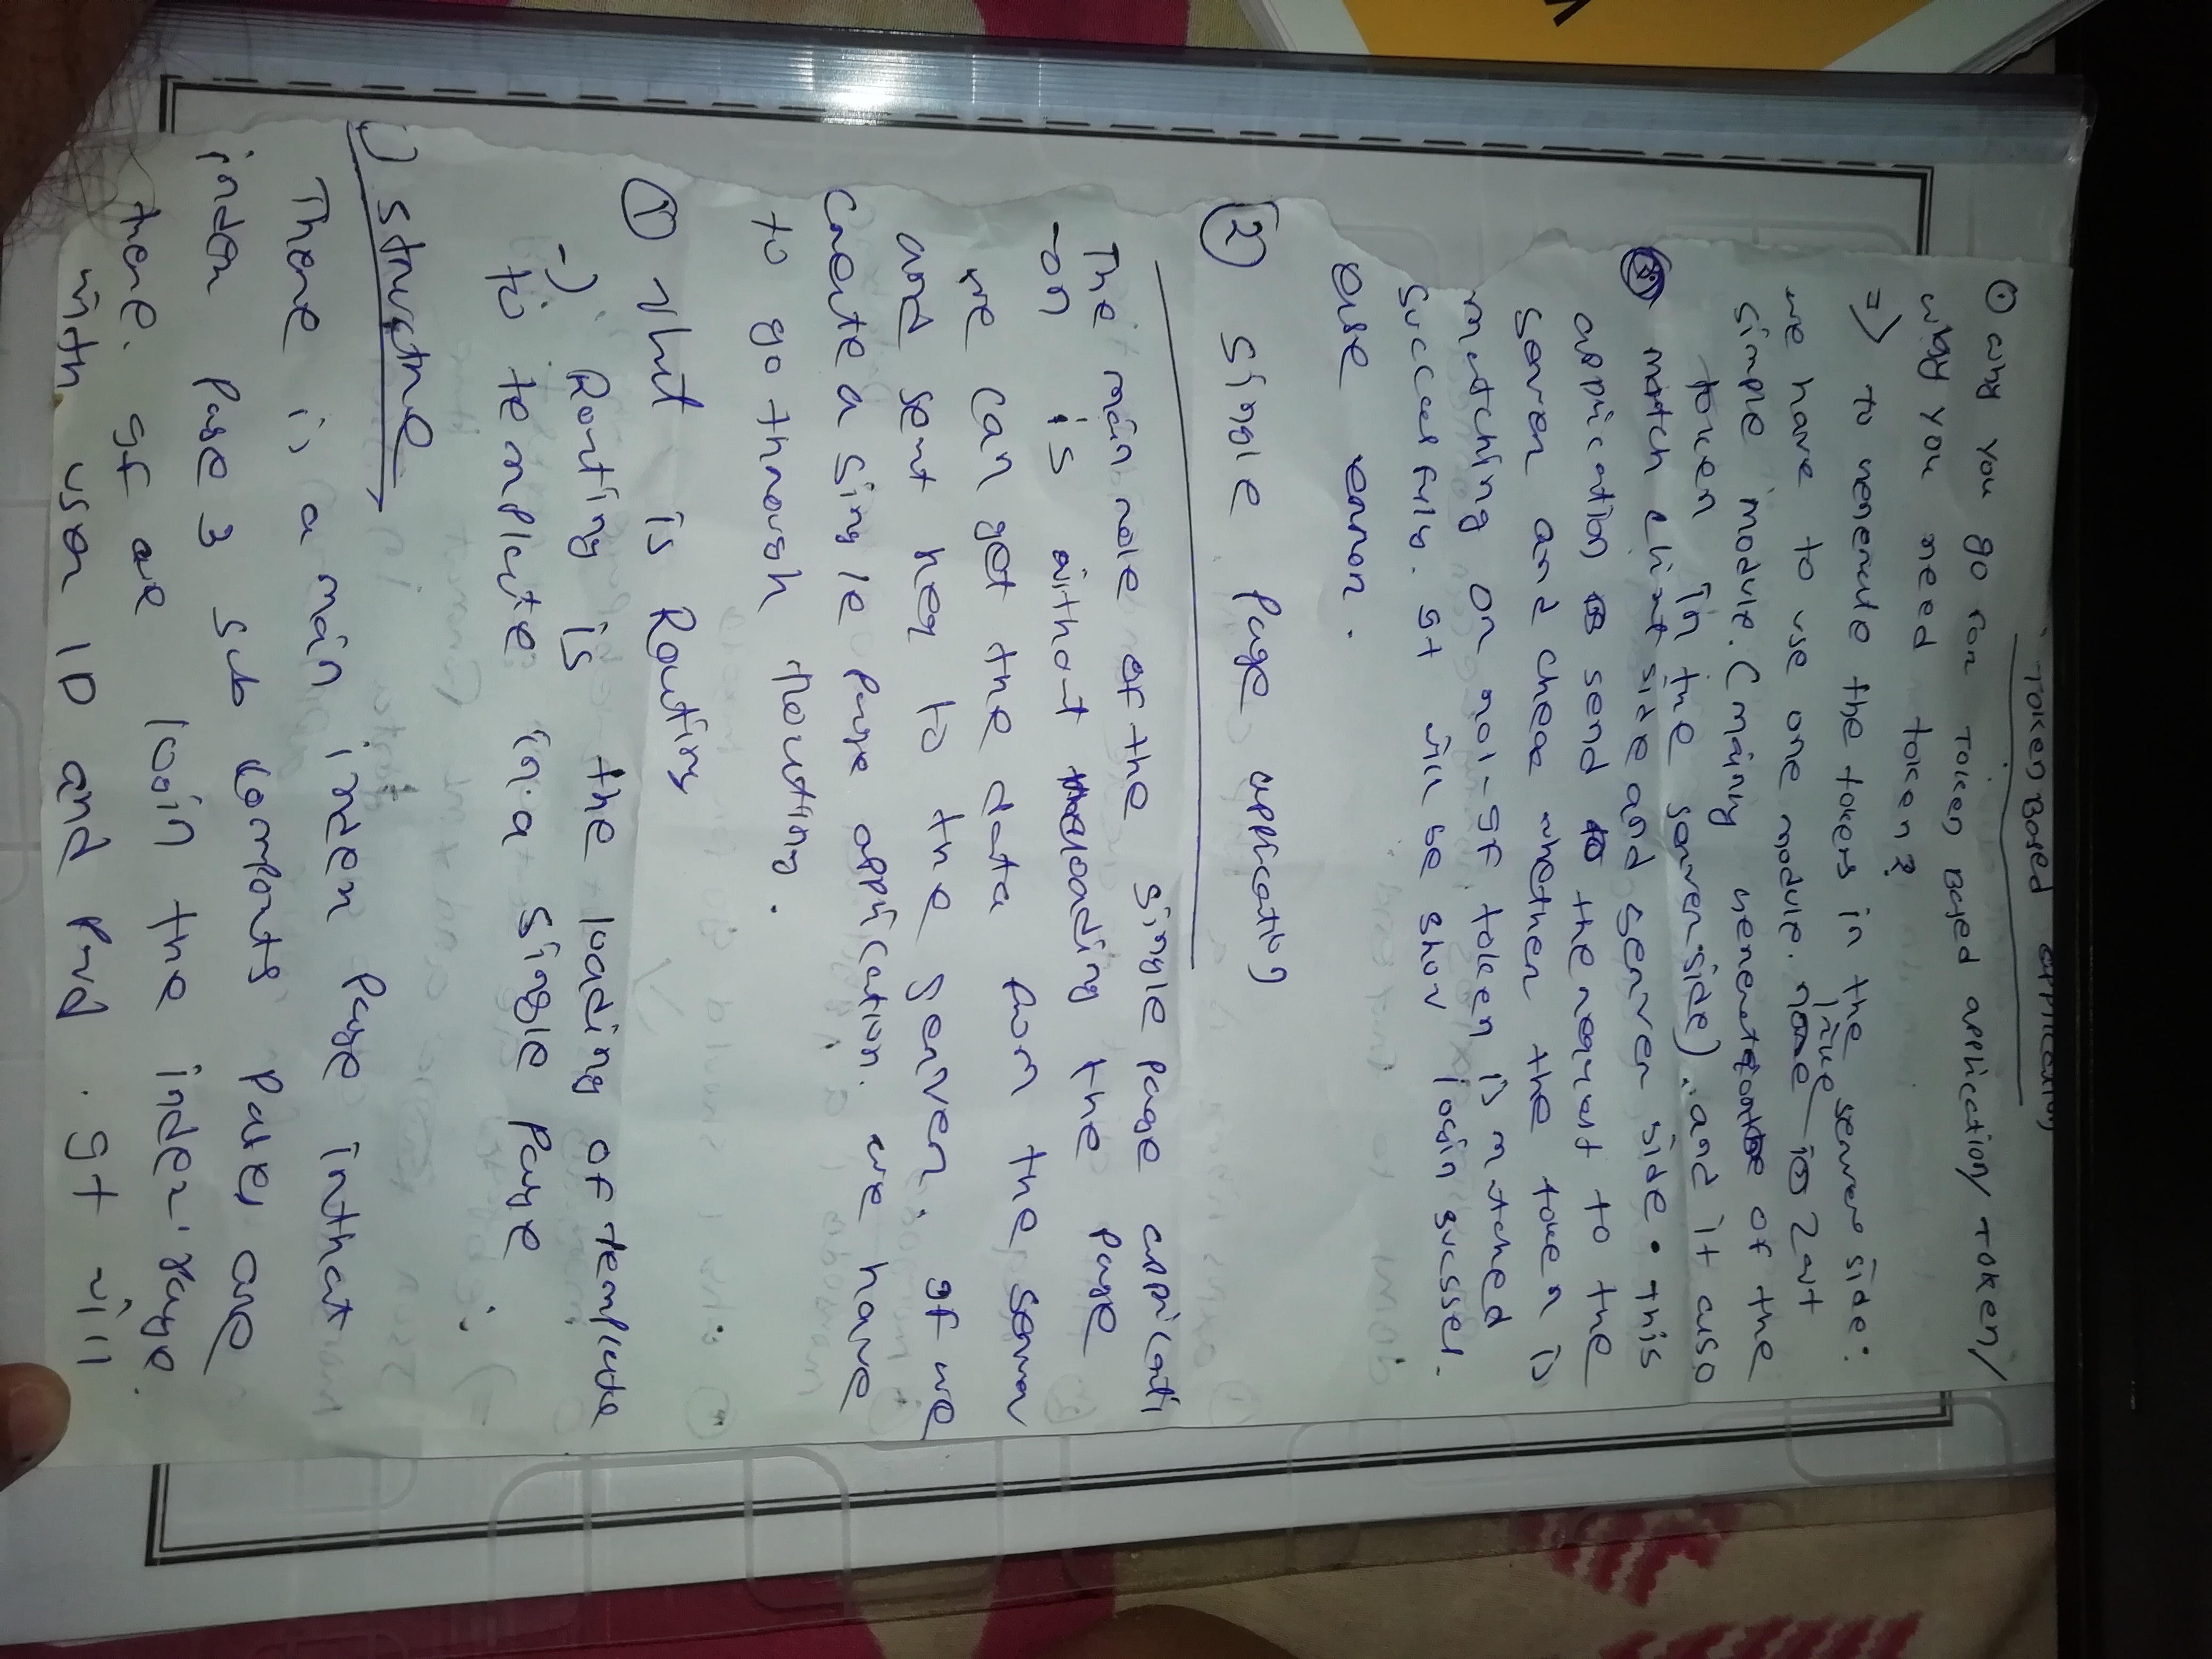 Token Based application
① why you go for Token Based application/ Token/
why you need token?
=> to generate the tokens in the server side.
we have to use one module. like
simple module. (mainly of the
token in the server side). and it also
match client side and server side. This
application send the request to the
server and check whether the token is
matching or not - If token is matched
successfully. It will be show login sucssel.
else error.
② single Page application
The main role of the single page applicati
-on is without reloading the page
we can get the data from the server
and sent req to the server. If we
create a single page application. we have
to go through routing.
① what is Routing
-> Routing is the loading of template
to template in a single page.
structre
There is a main index page in that
index page 3 sub componts pages are
there. If we login the index page
with user ID and pwd. It will